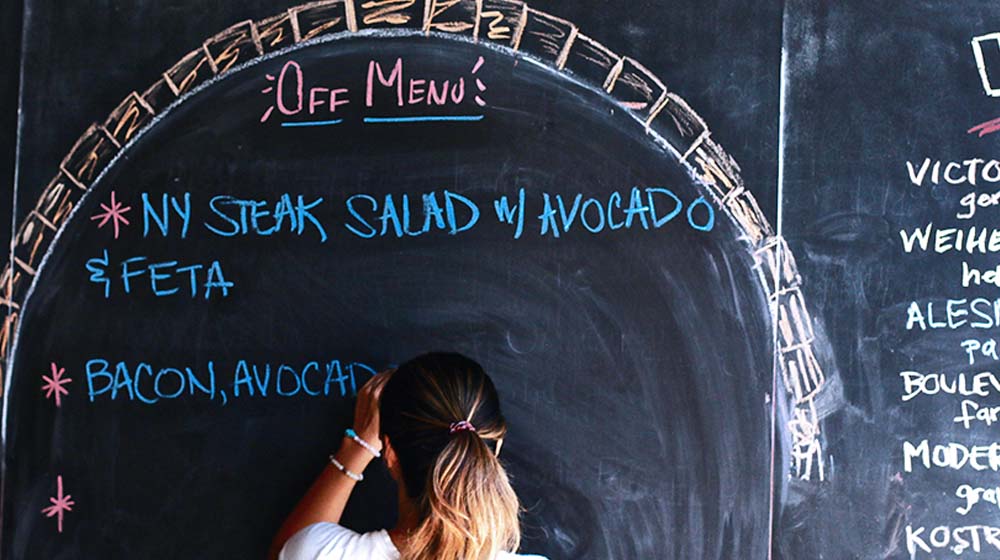 OFF MENU!
* NY STEAK SALAD W/ AVOCADO
& FETA
* BACON, AVOCAD
*
VICTO
ger
WEIHE
he
ALES
pa
BOULEV
far
MODER
gra
KOSTR